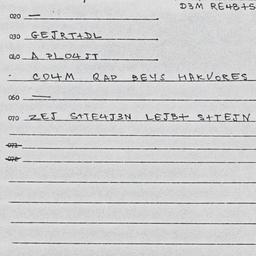 D3M RE4B+S
020 —
030 GEJRT+DL
040 A PLO4JT
CO4M QAP BEYS HAKVORES
060 —
070 ZEJ S+TE4J3N LEJB+ S+TEJN
072
072